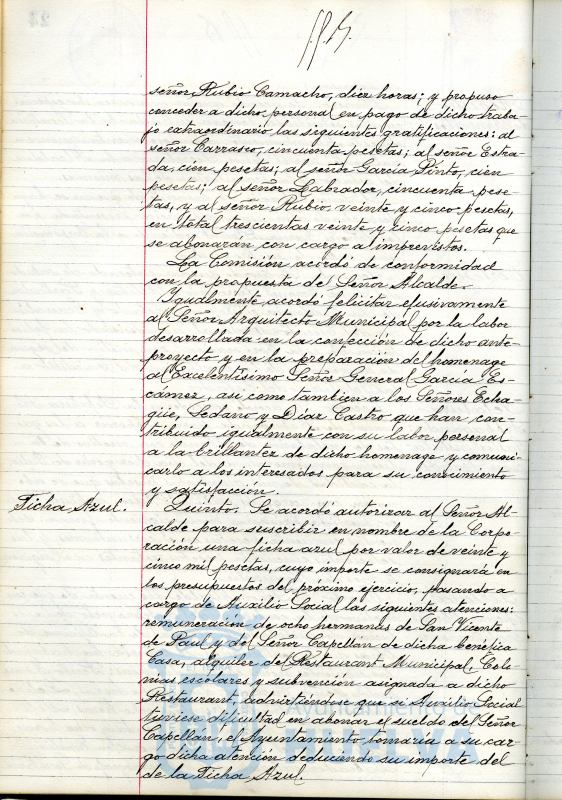 señor Rubio Camacho, diez horas; y propuso
conceder a dicho personal en pago de dicho traba-
jo extraordinario las siguientes gratificaciones: al
señor Carrasco, cincuenta pesetas; al señor Estra-
da, cien pesetas; al señor Garcia Pinto, cien
pesetas; al señor Labrador, cincuenta pese-
tas, y al señor Rubio veinte y cinco pesetas,
en total trescientas veinte y cinco pesetas que
se abonarán con cargo a imprevistos.
La Comisión acordó de conformidad
con la propuesta del Señor Alcalde.
Igualmente acordó felicitar efusivamente
al Señor Arquitecto Municipal por la labor
desarrollada en la confección de dicho ante-
proyecto y en la preparación del homenage
al Excelentísimo Señor General Garcia Es-
cámez, asi como tambien a los Señores Echa-
güe, Sedano y Díaz Castro que han con-
tribuido igualmente con su labor personal
a la brillantez de dicho homenage y comuni-
carlo a los interesados para su conocimiento
y satisfacción.
Ficha Azul.
Quinto. Se acordó autorizar al Señor Al-
calde para suscribir en nombre de la Corpo-
ración una ficha azul por valor de veinte y
cinco mil pesetas, cuyo importe se consignará en
los presupuestos del próximo ejercicio, pasando a
cargo de Auxilio Social las siguientes atenciones:
remuneración de ocho hermanas de San Vicente
de Paul y del Señor Capellan de dicha benéfica
Casa, alquiler del Restaurant Municipal, Colo-
nias escolares y subvención asignada a dicho
Restaurant, advirtiéndose que si Auxilio Social
tuviese dificultad en abonar el sueldo del Señor
Capellan, el Ayuntamiento tomaría a su car-
go dicha atención deduciendo su importe del
de la Ficha Azul.